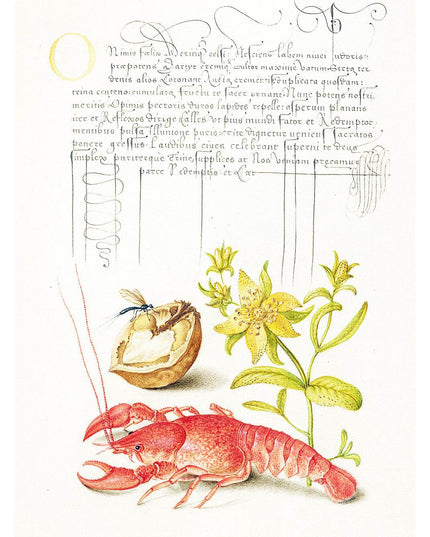 O Nimis fœlix Meritiq; celsi. Nesciens labem nivei pudoris:
præpotens Martyr eremiq; Cultor maxime vatum. Serta ter
denis alios Coronant Aucta crementis duplicata quosdam:
trina centeno cumulata, fructu te sacer ornant. Nunc potens nostri
meritis Opimis pectoris duros lapides repelle: asperum planans
iter et Reflexos dirige Calles. Ut pius mundi Sator et Redemptor
mentibus pulsa illuvione puris: rite dignetur veniens sacratos
ponere gressus. Laudibus cives celebrant superni te deus
simplex pariterque Trine, supplices at Nos Veniam precamur
parce Redemptis